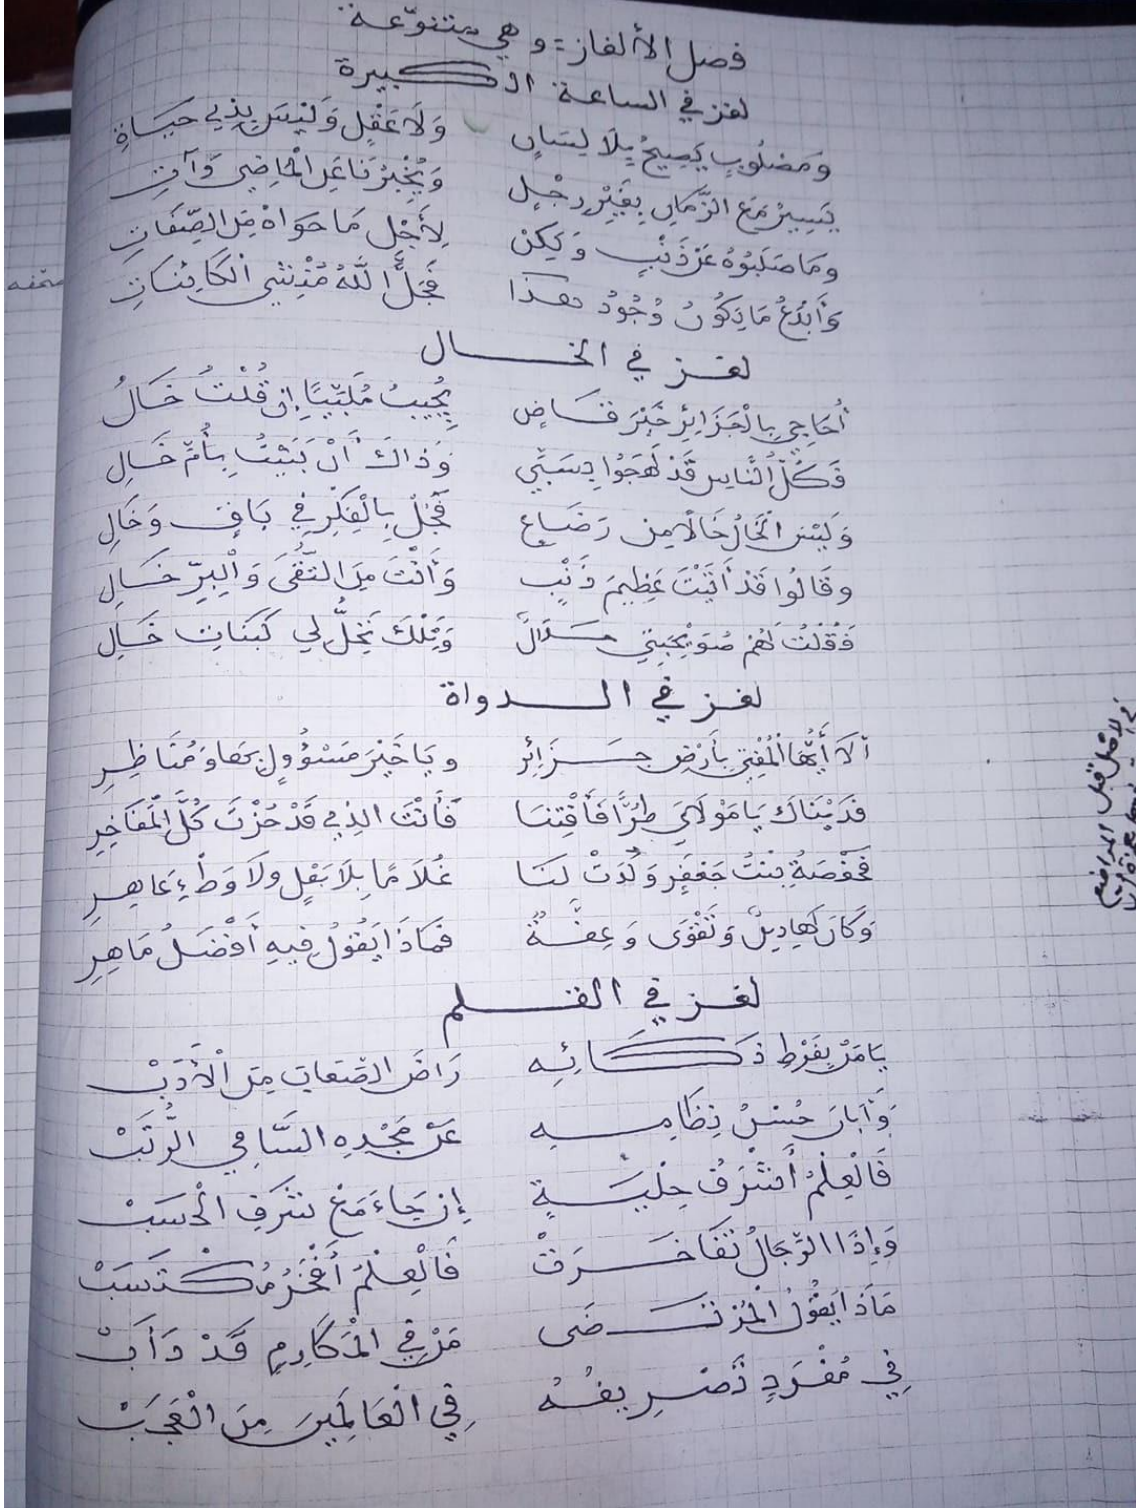 فصل الألغاز = وهي متنوّعة
لغز في الساعة الكبيرة
وَمَصْلُوبٍ يَصِيحُ بِلَا لِسَانٍ وَلَا عَقْلٍ وَلَيْسَ بِذِي حَيَاةِ
يَسِيرُ مَعَ الزَّمَانِ بِغَيْرِ رِجْلٍ وَيُخْبِرُنَا عَنِ الْمَاضِي وَآتِ
وَمَا صَلَبُوهُ عَنْ ذَنْبٍ وَلَكِنْ لِأَجْلِ مَا حَوَاهُ مِنَ الصِّفَاتِ
وَأَبْدَعُ مَا يَكُونُ وُجُودُ هكذا فَجَلَّ اللَّهُ مُنْشِي الْكَائِنَاتِ
لغز في الخال
أُحَاجِي بِالْجَزَائِرِ خَيْرَ قَاضٍ يُجِيبُ مُلَبِّيًا إِنْ قُلْتُ خَالُ
فَكُلُّ النَّاسِ قَدْ لَهَجُوا بِسَبِّي وَذَاكَ أَنْ بَنَيْتُ بِأُمِّ خَالِ
وَلَيْسَ الْخَالُ خَالًا مِن رَضَاعٍ فَجُلْ بِالْفِكْرِ فِي بَاقٍ وَخَالِ
وَقَالُوا قَدْ أَتَيْتَ عَظِيمَ ذَنْبٍ وَأَنْتَ مِنَ التُّقَى وَالْبِرِّ خَالِ
فَقُلْتُ لَهُمْ صُوَيْحِبَتِي حَلَالٌ وَتِلْكَ تَحِلُّ لِي كَبَنَاتِ خَالِ
لغز في الدواة
أَلَا أَيُّهَا الْمُفْتِي بِأَرْضِ جَزَائِرِ وَيَا خَيْرَ مَسْؤُولٍ بِهَا وَمُنَاظِرِ
فَدَيْنَاكَ يَا مَوْلَايَ طُرًّا فَأَفْتِنَا فَأَنْتَ الذِي قَدْ حُزْتَ كُلَّ الْمَفَاخِرِ
بِنْتُ جَعْفَرٍ وَلَدَتْ لَنَا غُلَامًا بِلَا بَعْلٍ وَلَا وَطْءِ عَاهِرِ
وَكَانَ لَهَا دِينٌ وَتَقْوَى وَعِفَّةٌ فَمَاذَا يَقُولُ فِيهِ أَفْضَلُ مَاهِرِ
لغز في القلم
يَا مَنْ بِفَرْطِ ذَكَائِهِ رَاضَ الصِّعَابَ مِنَ الْأَدَبْ
وَأَبَانَ حُسْنُ نِظَامِهِ عَنْ مَجْدِهِ السَّامِي الرُّتَبْ
فَالْعِلْمُ أَشْرَفُ حِلْيَةٍ إِن جَاءَ مَعْ شَرَفِ الْحَسَبْ
وَإِذَا الرِّجَالُ تَفَاخَرَتْ فَالْعِلْمُ أَفْخَرُ مُكْتَسَبْ
مَاذَا يَقُولُ الْمُرْتَضَى مَنْ فِي الْمَكَارِمِ قَدْ دَأَبْ
فِي مُفْرَدٍ تَصْرِيفُهُ فِي الْعَالَمِينَ مِنَ الْعَجَبْ